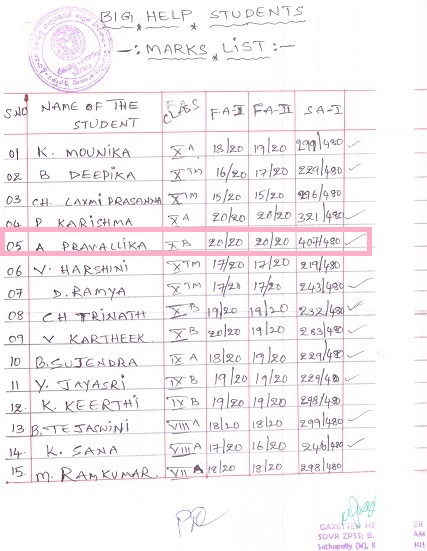 BIG HELP STUDENTS
-: MARKS LIST :-
S.NO NAME OF THE STUDENT CLASS FA-I FA-II SA-I
01 K. MOUNIKA X A 18/20 19/20 299/480
02 B DEEPIKA X TM 16/20 17/20 229/480
03 CH. LAXMI PRASANNA X TM 15/20 15/20 296/480
04 P. KARISHMA X A 20/20 20/20 321/480
05 A PRAVALLIKA X B 20/20 20/20 407/480
06 V. HARSHINI X TM 17/20 17/20 219/480
07 D. RAMYA X TM 17/20 17/20 243/480
08 CH TRINATH X B 19/20 19/20 232/480
09 V KARTHEEK X B 20/20 19/20 283/480
10 B. SUJENDRA IX A 18/20 19/20 229/480
11 Y. JAYASRI IX B 19/20 19/20 229/480
12. K. KEERTHI IX B 19/20 19/20 298/480
13. B. TEJASWINI VIII A 18/20 18/20 299/480
14. K. SANA VIII A 17/20 16/20 246/480
15. M. RAMKUMAR VII A 18/20 18/20 298/480
SDVR ZPSS: B.
Sathupally (M),